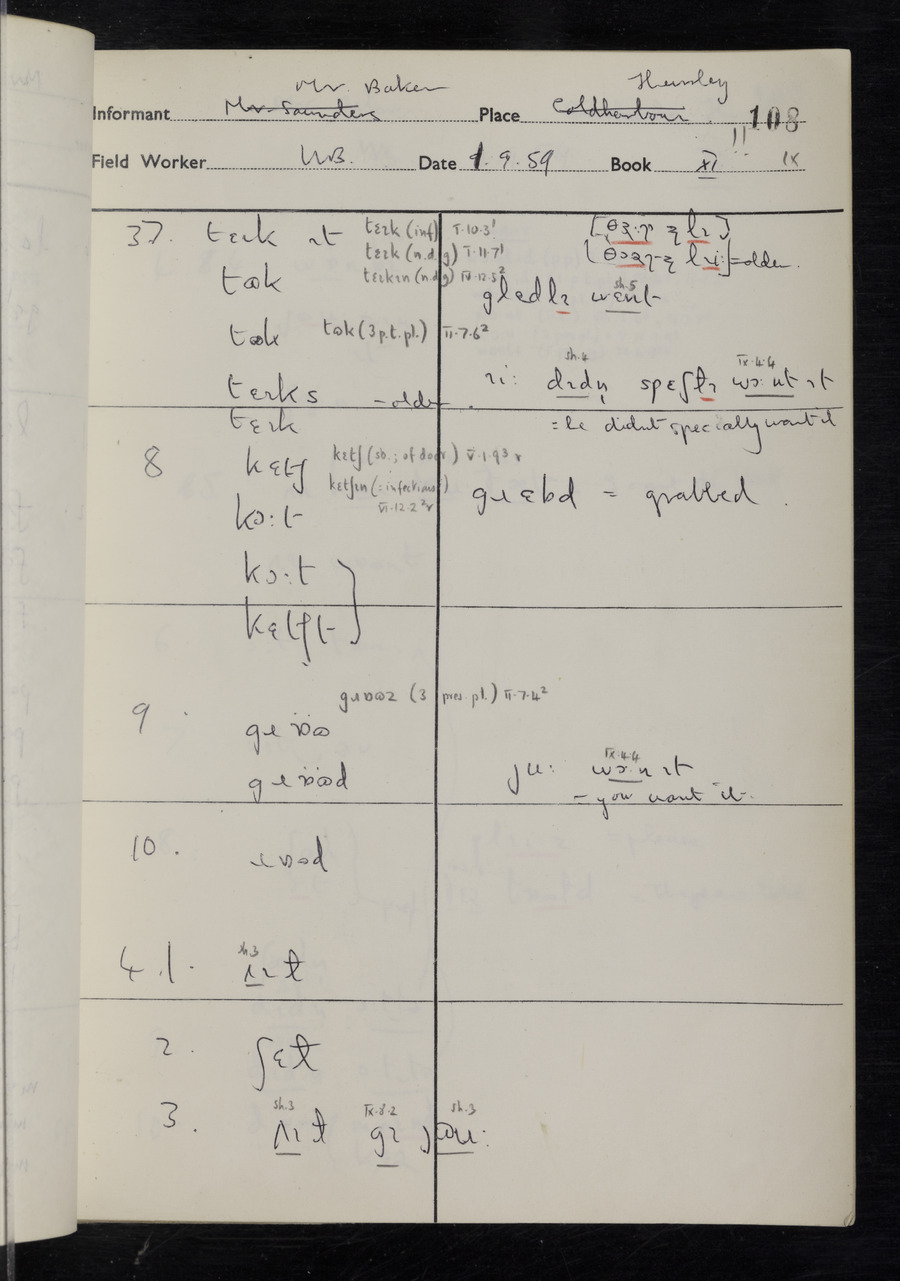 Mr. Baker Hensley
Informant Mr. Saunders Place Coldharbour 108
Field Worker Date 1.9.59 Book XI IX
37. tɛɪk ɪt tɛɪk (inf) I·10·3¹
tɛɪk (n.d.g) I·11·7¹ = older.
tɛɪkɪn (n.d.g) IV·12·5²
tʊk
sh.5
glɛdlɪ wɛnt
tʊk tʊk (3 p.t. pl.) II·7·6²
sh.4 IX·4·4
ɪi: dɪdn̩ spɛʃlɪ wɔ:nt ɪt
tɛɪks - older.
tɛɪk = he didn't specially want it
8 kɛtʃ kɛtʃ (sb.; of door) V·1·9³ r
kɛtʃɪn (= infectious) VI·12·2² r
gɹɛbd = grabbed.
kɔ:t
kɔ:t
kɛtʃt
gɹɒʊz (3 pres. pl.) II·7·4²
9. gɹɒʊ
gɹɒʊd
IX·4·4
ju: wɔ:n ɪt
= you want it.
10.
sh.3
4.1. ʌɪt
2. ʃɛt
sh.3 IX·8·2 sh.3
3.